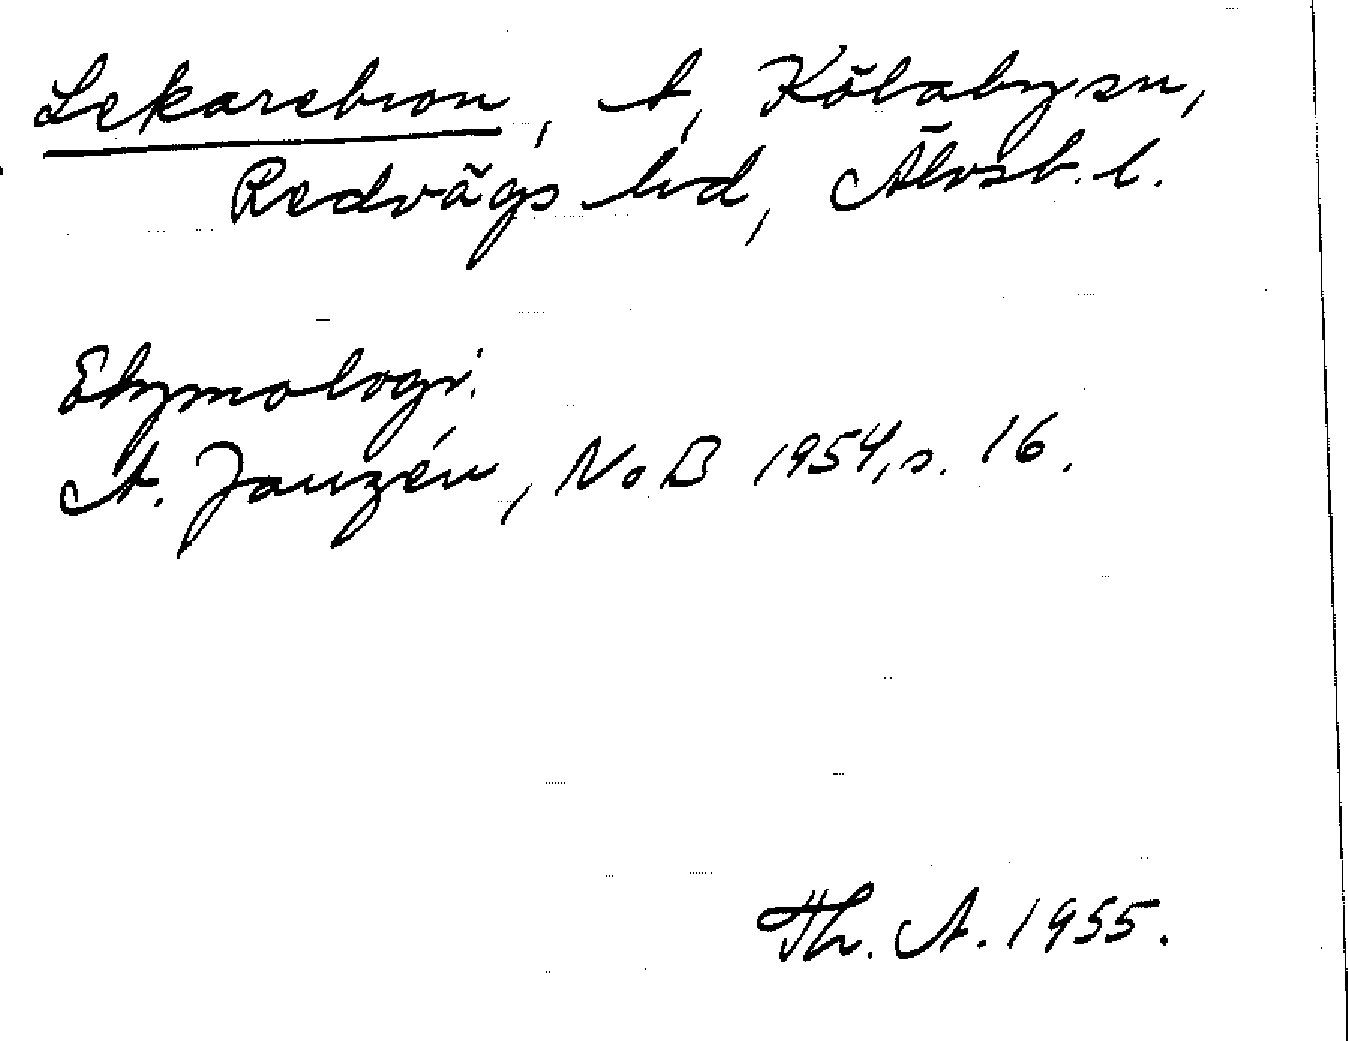 Lekarebron, t, Kölaby sn,
Redvägs hd, Älvsb. l.
Etymologi.
A. Janzén, NoB 1954, s. 16.
Th. A. 1955.